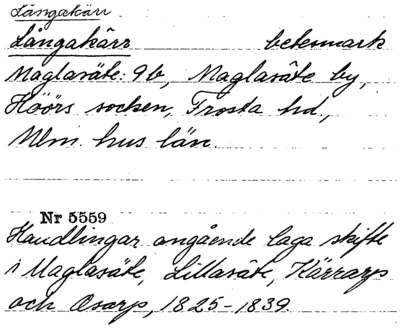 Långakärr
Långakärr betesmark
Maglasäte: 9b, Maglasäte by,
Höörs socken, Frosta hd,
Mlm. hus län.
Nr 5559
Handlingar angående laga skifte
i Maglasäte, Lillasäte, Kärrarp
och Osarp, 1825-1839.